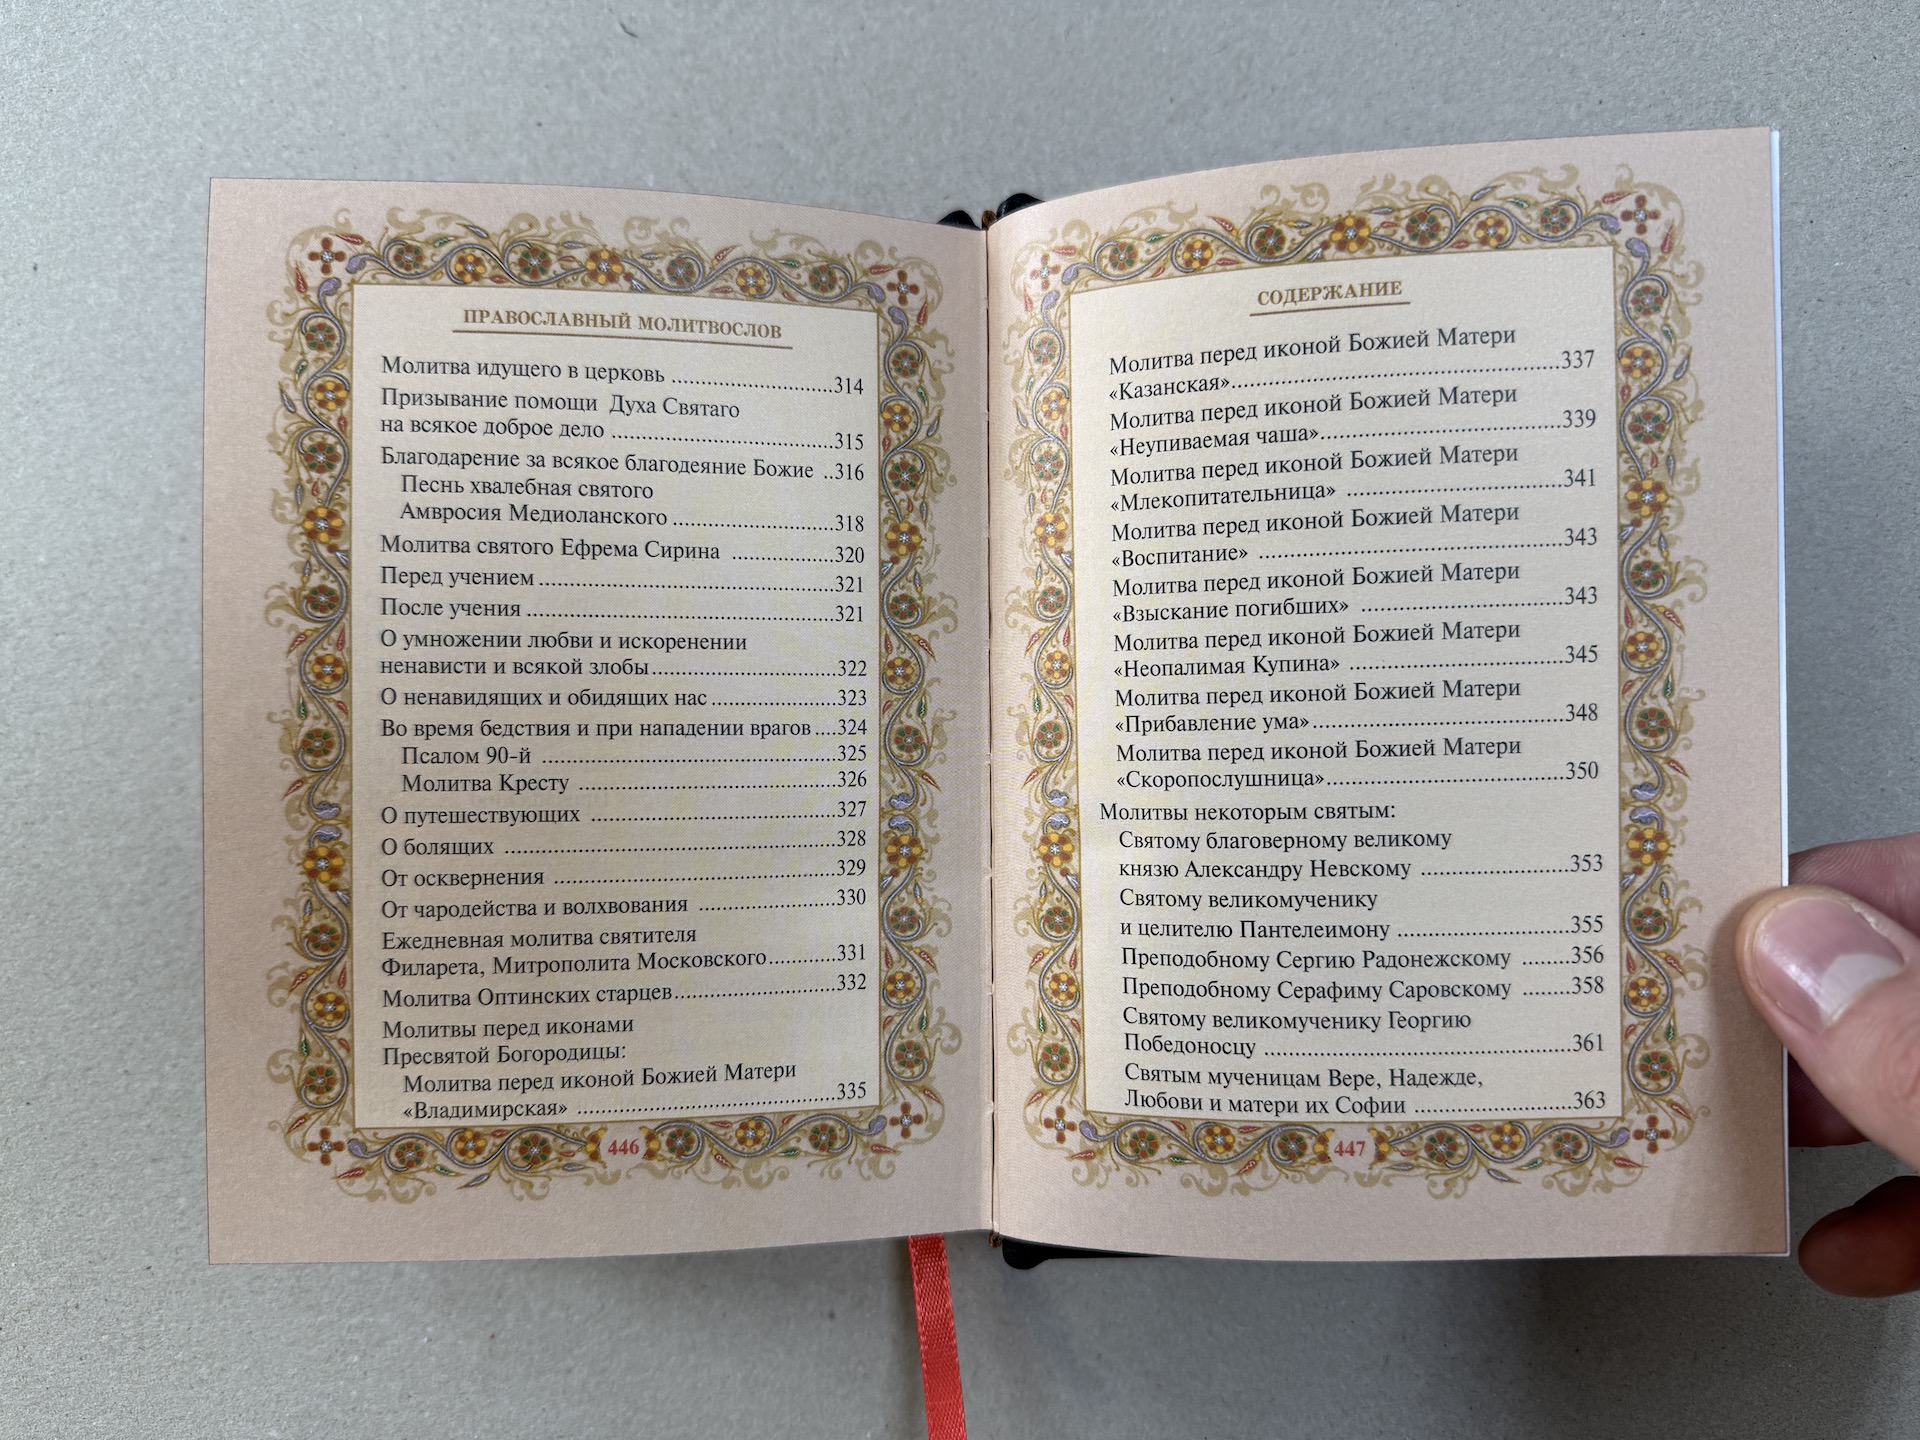 ПРАВОСЛАВНЫЙ МОЛИТВОСЛОВ
Молитва идущего в церковь ........................314
Призывание помощи Духа Святаго
на всякое доброе дело .................................315
Благодарение за всякое благодеяние Божие ..316
Песнь хвалебная святого
Амвросия Медиоланского ........................318
Молитва святого Ефрема Сирина ...............320
Перед учением .............................................321
После учения ...............................................321
О умножении любви и искоренении
ненависти и всякой злобы...........................322
О ненавидящих и обидящих нас ..................323
Во время бедствия и при нападении врагов ....324
Псалом 90-й ...........................................325
Молитва Кресту ......................................326
О путешествующих .....................................327
О болящих ...................................................328
От осквернения ...........................................329
От чародейства и волхвования .....................330
Ежедневная молитва святителя
Филарета, Митрополита Московского..........331
Молитва Оптинских старцев........................332
Молитвы перед иконами
Пресвятой Богородицы:
Молитва перед иконой Божией Матери
«Владимирская» .......................................335
446
СОДЕРЖАНИЕ
Молитва перед иконой Божией Матери
«Казанская»..................................................337
Молитва перед иконой Божией Матери
«Неупиваемая чаша»....................................339
Молитва перед иконой Божией Матери
«Млекопитательница» .................................341
Молитва перед иконой Божией Матери
«Воспитание» ..............................................343
Молитва перед иконой Божией Матери
«Взыскание погибших» ...............................343
Молитва перед иконой Божией Матери
«Неопалимая Купина» ................................345
Молитва перед иконой Божией Матери
«Прибавление ума»......................................348
Молитва перед иконой Божией Матери
«Скоропослушница»....................................350
Молитвы некоторым святым:
Святому благоверному великому
князю Александру Невскому ...........................353
Святому великомученику
и целителю Пантелеимону ..........................355
Преподобному Сергию Радонежскому ........356
Преподобному Серафиму Саровскому ........358
Святому великомученику Георгию
Победоносцу .............................................361
Святым мученицам Вере, Надежде,
Любови и матери их Софии .......................363
447